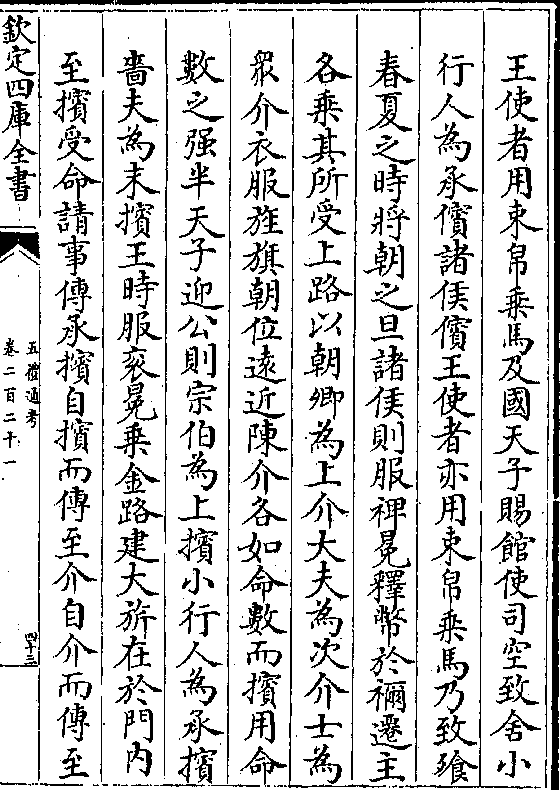 王使者用束帛乗馬及國天子賜館使司空致舍小
行人為承儐諸侯儐王使者亦用束帛乗馬乃致飱
春夏之時將朝之旦諸侯則服裨冕釋幣於禰遷主
各乗其所受上路以朝卿為上介大夫為次介士為
衆介衣服旌旗朝位遠近陳介各如命數而擯用命
數之强半天子迎公則宗伯為上擯小行人為承擯
嗇夫為末擯王時服衮冕乗金路建大旂在於門内
至擯受命請事傳承擯自擯而傳至介自介而傳至
欽定四庫全書
五禮通考
卷二百二十一
四十三